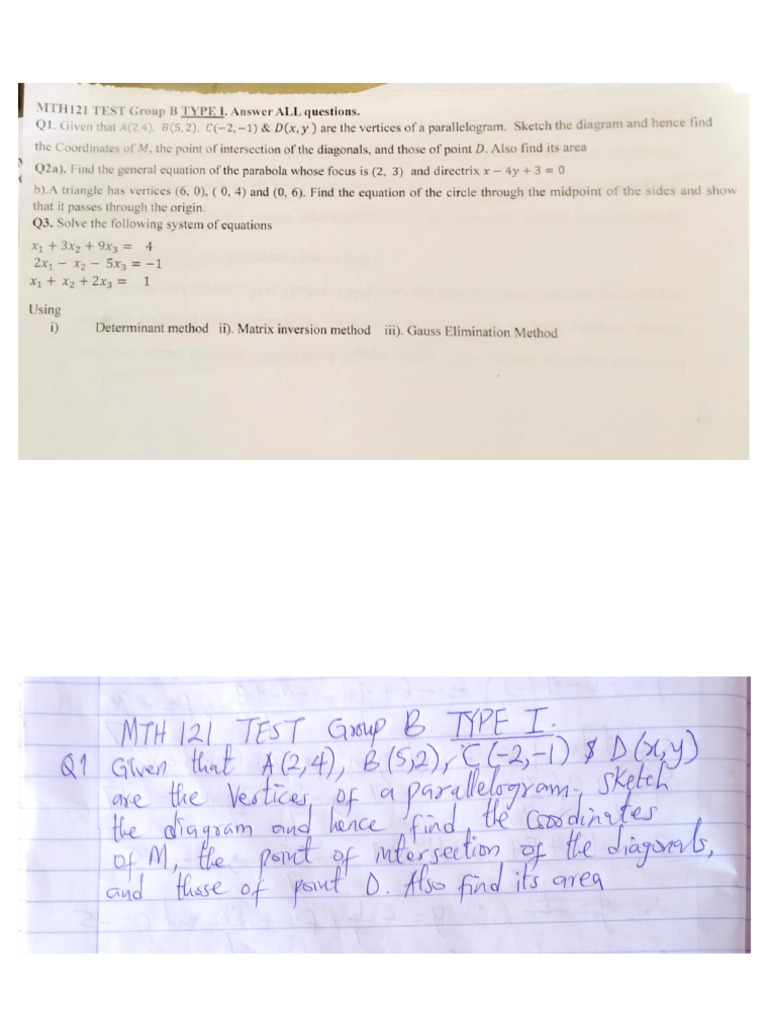 MTH121 TEST Group B TYPE I. Answer ALL questions.
Q1. Given that A(2 4). B(5, 2). C(−2, −1) & D(x, y ) are the vertices of a parallelogram. Sketch the diagram and hence find
the Coordinates of M, the point of intersection of the diagonals, and those of point D. Also find its area
Q2a). Find the general equation of the parabola whose focus is (2, 3) and directrix x − 4y + 3 = 0
b).A triangle has vertices (6, 0), ( 0, 4) and (0, 6). Find the equation of the circle through the midpoint of the sides and show
that it passes through the origin.
Q3. Solve the following system of equations
x₁ + 3x₂ + 9x₃ = 4
2x₁ − x₂ − 5x₃ = −1
x₁ + x₂ + 2x₃ = 1
Using
i) Determinant method ii). Matrix inversion method iii). Gauss Elimination Method
MTH 121 TEST Group B TYPE I.
Q1 Given that A(2,4), B(5,2), C(-2,-1) & D(x,y)
are the Vertices of a parallelogram, sketch
the diagram and hence find the Coordinates
of M, the point of intersection of the diagonals,
and those of point D. Also find its area